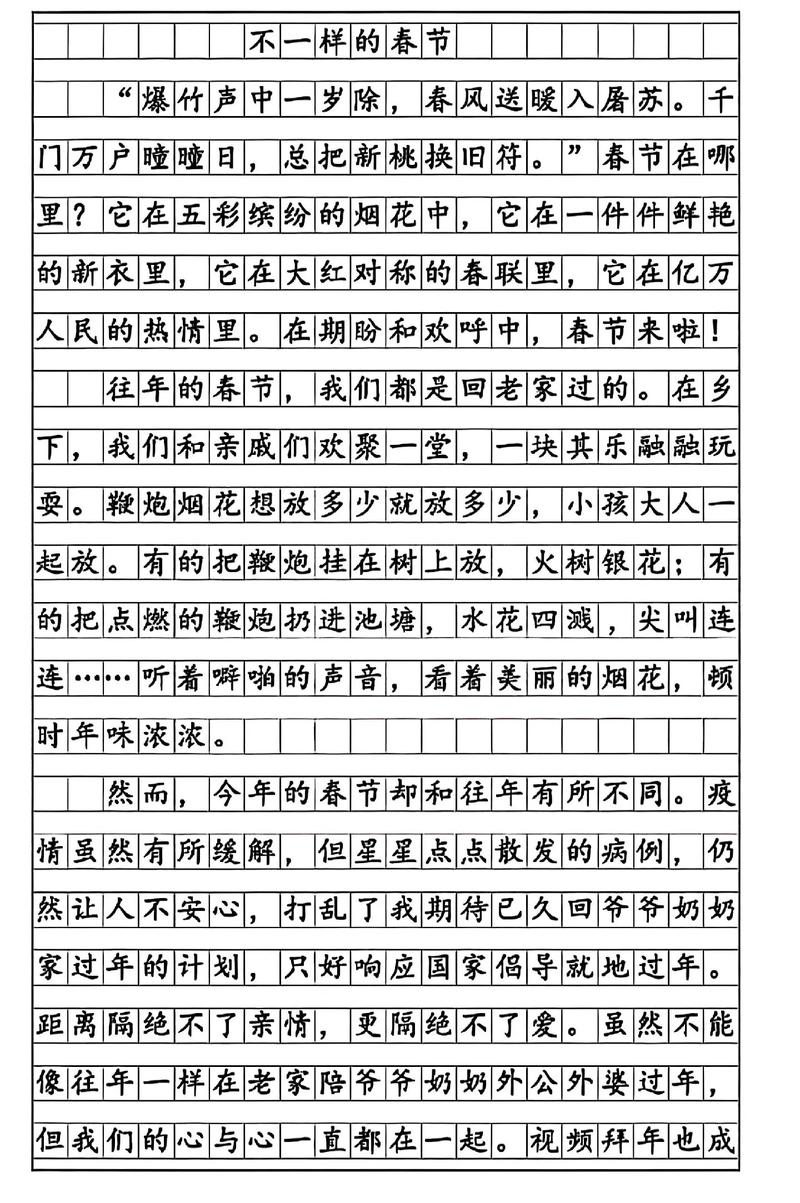 不一样的春节
“爆竹声中一岁除，春风送暖入屠苏。千
门万户曈曈日，总把新桃换旧符。”春节在哪
里？它在五彩缤纷的烟花中，它在一件件鲜艳
的新衣里，它在大红对称的春联里，它在亿万
人民的热情里。在期盼和欢呼中，春节来啦！
往年的春节，我们都是回老家过的。在乡
下，我们和亲戚们欢聚一堂，一块其乐融融玩
耍。鞭炮烟花想放多少就放多少，小孩大人一
起放。有的把鞭炮挂在树上放，火树银花；有
的把点燃的鞭炮扔进池塘，水花四溅，尖叫连
连……听着噼啪的声音，看着美丽的烟花，顿
时年味浓浓。
然而，今年的春节却和往年有所不同。疫
情虽然有所缓解，但星星点点散发的病例，仍
然让人不安心，打乱了我期待已久回爷爷奶奶
家过年的计划，只好响应国家倡导就地过年。
距离隔绝不了亲情，更隔绝不了爱。虽然不能
像往年一样在老家陪爷爷奶奶外公外婆过年，
但我们的心与心一直都在一起。视频拜年也成